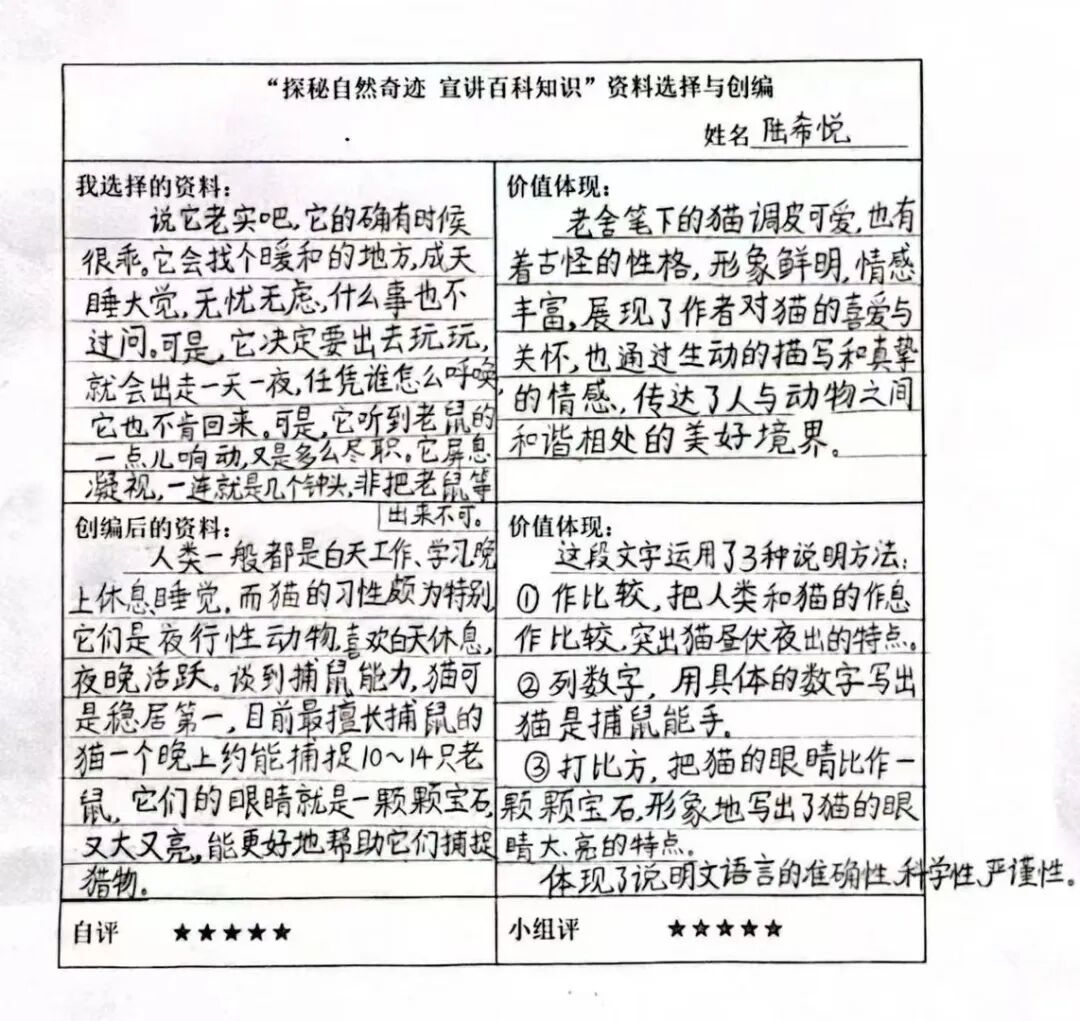 “探秘自然奇迹 宣讲百科知识”资料选择与创编
姓名 陆希悦
我选择的资料：
说它老实吧，它的确有时候
很乖。它会找个暖和的地方，成天
睡大觉，无忧无虑，什么事也不
过问。可是，它决定要出去玩玩，
就会出走一天一夜，任凭谁怎么呼唤，
它也不肯回来。可是，它听到老鼠的
一点儿响动，又是多么尽职。它屏息
凝视，一连就是几个钟头，非把老鼠等
出来不可。
价值体现：
老舍笔下的猫调皮可爱，也有
着古怪的性格，形象鲜明，情感
丰富，展现了作者对猫的喜爱与
关怀，也通过生动的描写和真挚
的情感，传达了人与动物之间
和谐相处的美好境界。
创编后的资料：
人类一般都是白天工作、学习，晚
上休息、睡觉，而猫的习性颇为特别，
它们是夜行性动物，喜欢白天休息，
夜晚活跃。谈到捕鼠能力，猫可
是稳居第一，目前最擅长捕鼠的
猫一个晚上约能捕捉10~14只老
鼠，它们的眼睛就是一颗颗宝石，
又大又亮，能更好地帮助它们捕捉
猎物。
价值体现：
这段文字运用了3种说明方法：
①作比较，把人类和猫的作息
作比较，突出猫昼伏夜出的特点。
②列数字，用具体的数字写出
猫是捕鼠能手。
③打比方，把猫的眼睛比作一
颗颗宝石，形象地写出了猫的眼
睛大、亮的特点。
体现了说明文语言的准确性、科学性、严谨性。
自评 ★★★★★
小组评 ★★★★★